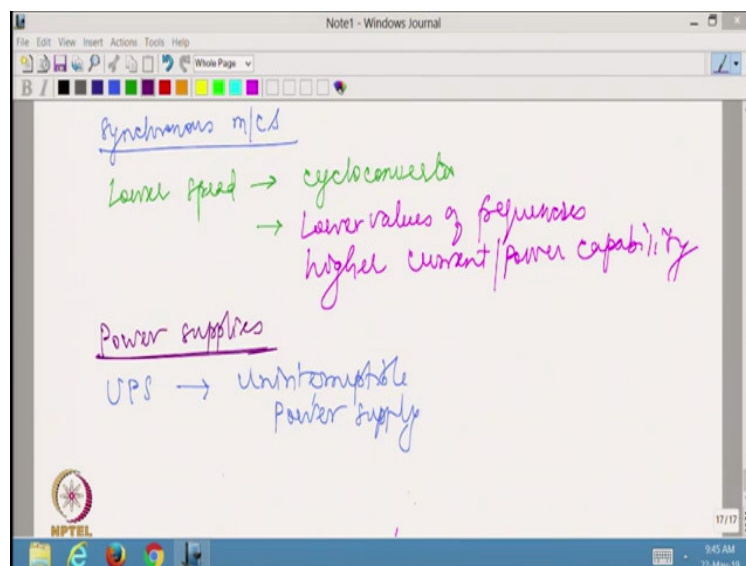 Note1 - Windows Journal
File Edit View Insert Actions Tools Help
Whole Page
B I
Synchronous m/cs
Lower speed → cycloconvertor
→ Lower values of frequencies
higher current/power capability
Power supplies
UPS → Uninterruptible
Power supply
NPTEL
17/17
9:45 AM
22-May-19